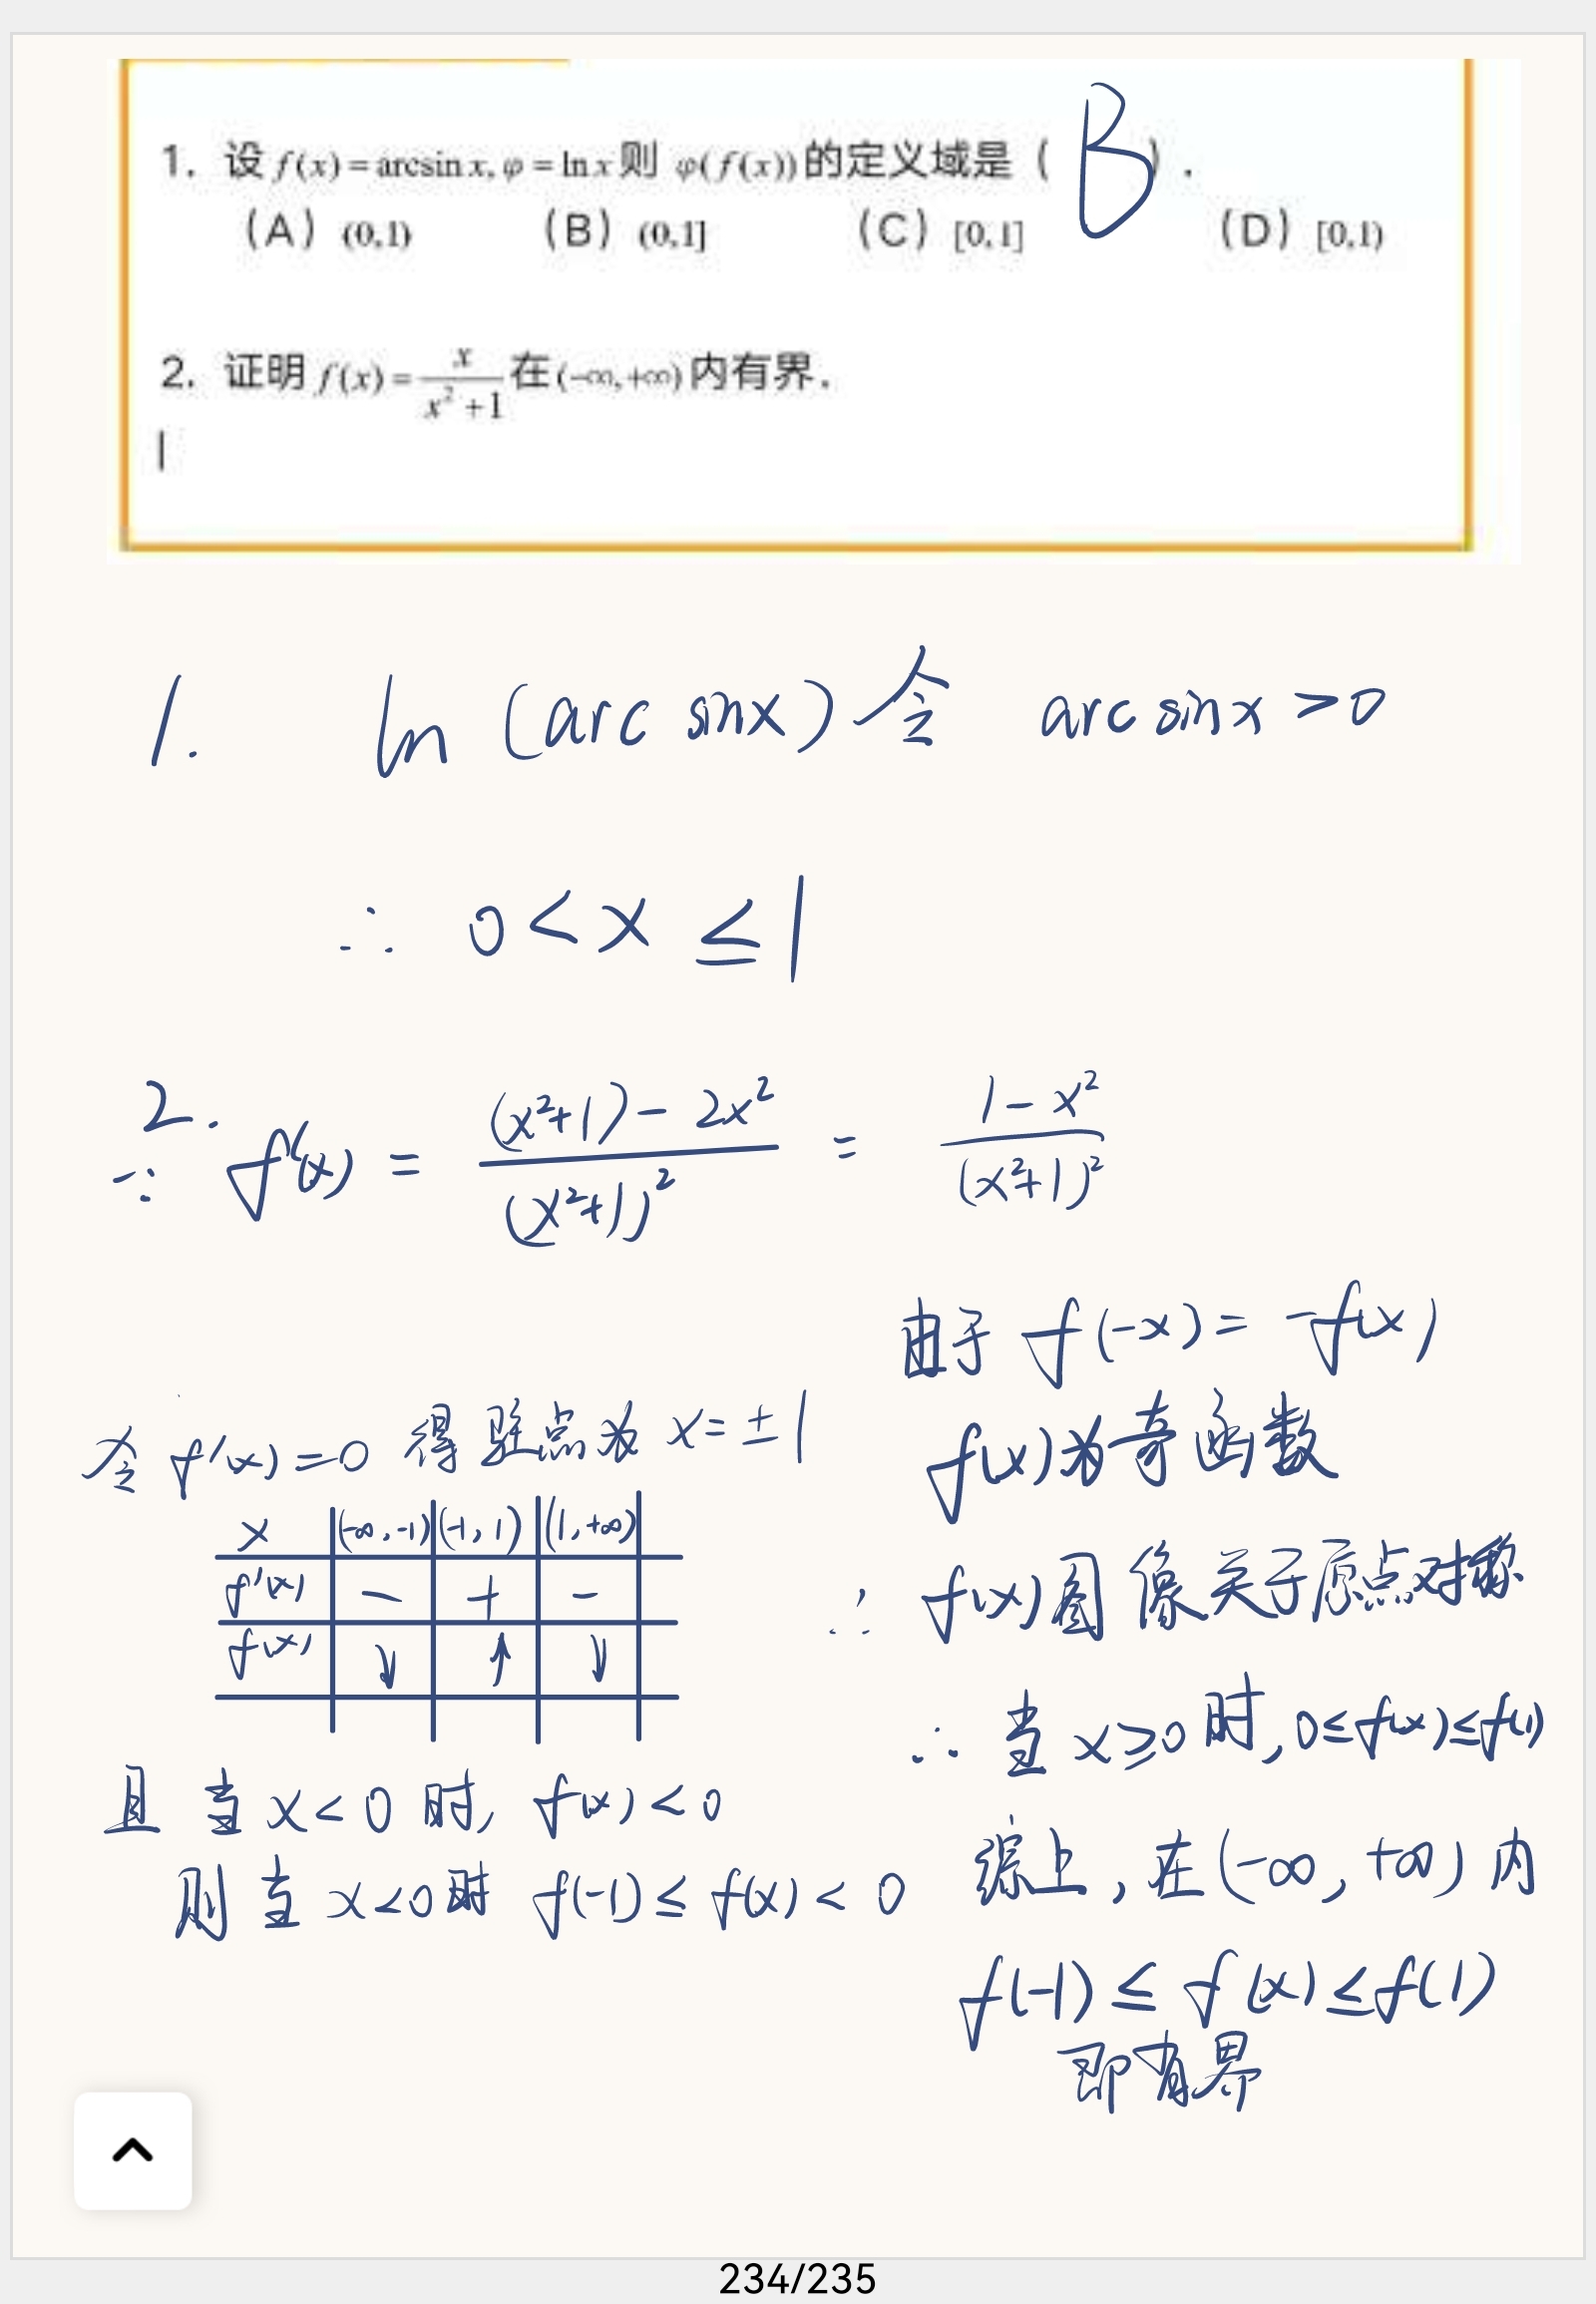 1. 设 f(x) = arcsin x, φ = ln x 则 φ(f(x)) 的定义域是 ( B ).
(A) (0,1) (B) (0,1] (C) [0,1] (D) [0,1)
2. 证明 f(x) = x/(x²+1) 在 (-∞, +∞) 内有界.
1. ln (arc sinx) 令 arc sinx > 0
∴ 0 < x ≤ 1
2.
∵ f'(x) = ((x²+1) - 2x²)/(x²+1)² = (1 - x²)/(x²+1)²
令 f'(x) = 0 得 驻点为 x = ±1
x (-∞, -1) (-1, 1) (1, +∞)
f'(x) − + −
f(x) ↓ ↑ ↓
且 当 x < 0 时, f(x) < 0
则 当 x < 0 时 f(-1) ≤ f(x) < 0
由于 f(-x) = -f(x)
f(x) 为奇函数
∴ f(x) 图像关于原点对称
∴ 当 x ≥ 0 时, 0 ≤ f(x) ≤ f(1)
综上, 在 (-∞, +∞) 内
f(-1) ≤ f(x) ≤ f(1)
即有界
234/235